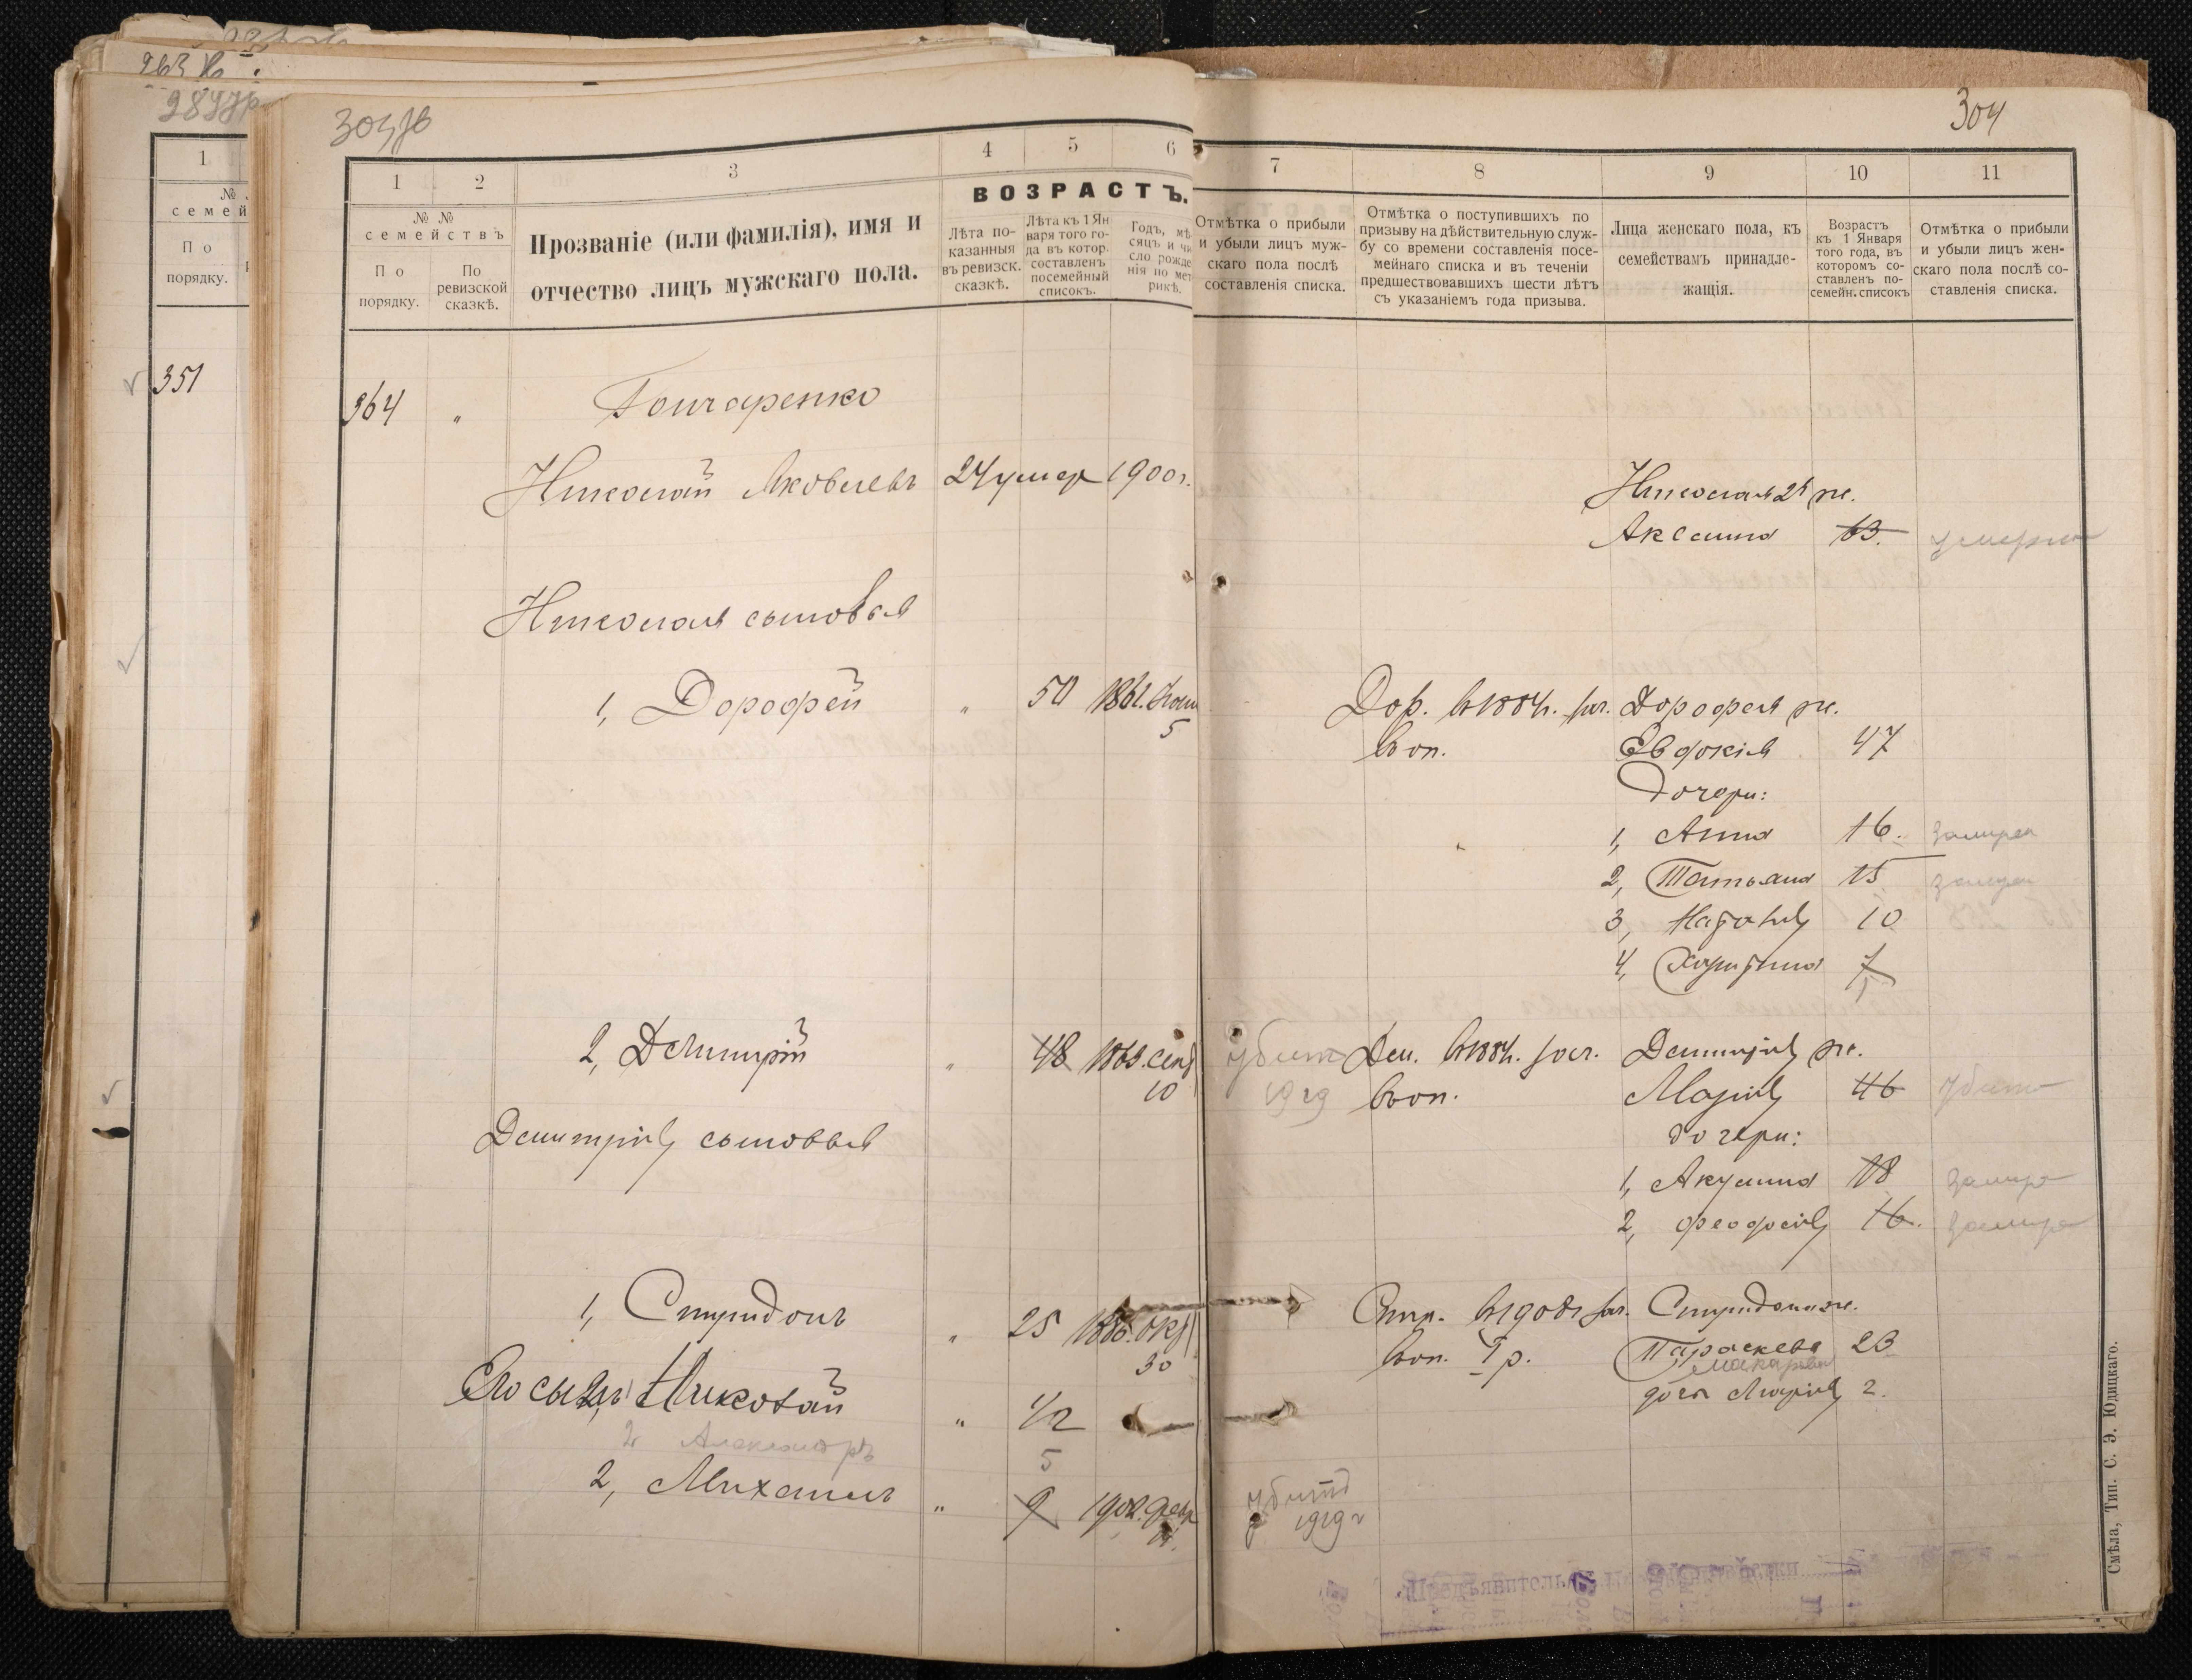 304
1
№
семей
По
порядку.
351
1
2
3
4
5
6
№ №
семействъ
По
порядку.
По
ревизской
сказкѣ.
Прозваніе (или фамилія), имя и
отчество лицъ мужскаго пола.
ВОЗРАСТЪ.
Лѣта по-
казанныя
въ ревизск.
сказкѣ.
Лѣта къ 1 Ян
варя того го-
да въ котор.
составленъ
посемейный
списокъ.
Годъ, мѣ
сяцъ и чи
сло рожде
нія по мет
рикѣ.
7
8
9
10
11
Отмѣтка о прибыли
и убыли лицъ муж-
скаго пола послѣ
составленія списка.
Отмѣтка о поступившихъ по
призыву на дѣйствительную служ-
бу со времени составленія посе-
мейнаго списка и въ теченіи
предшествовавшихъ шести лѣтъ
съ указаніемъ года призыва.
Лица женскаго пола, къ
семействамъ принадле-
жащія.
Возрастъ
къ 1 Января
того года, въ
которомъ со-
ставленъ по-
семейн. списокъ
Отмѣтка о прибыли
и убыли лицъ жен-
скаго пола послѣ со-
ставленія списка.
364 " Гончаренко
Николай Яковлевъ 24 умер 1900г.
Николая 2я ж.
Аксинія 63. умерла
Николая сыновья
1, Дорофей " 50 1861. 5
Дор. в 1884г. зач. Дорофея ж.
в оп. Евдокія 47
дочери:
1, Анна 16. замуж
2, Татьяна 15 замуж
3, Наталія 10
4, Харитина 7
2, Дмитрій " 48 1863. сент 10 убит 1919
Дм. в 1884г. зач. Димитрія ж.
в оп. Марія 46 убита
Димитрія сыновья
дочери:
1, Акулина 18 замуж
2, Феодосія 16. замуж
1, Спиридонъ " 25 1886. окт 30
Спир. в 1908г зач. Спиридона ж.
в оп. 1 р. Параскева 23
Макарова
дочь Марія 2.
Его сынъ 1 Николай " 1/2
2 Александръ 5
2, Михаилъ " 9 1902. февр убитъ
1919 г
Предъявитель
Смѣла, Тип. С. Э. Юдицкаго.